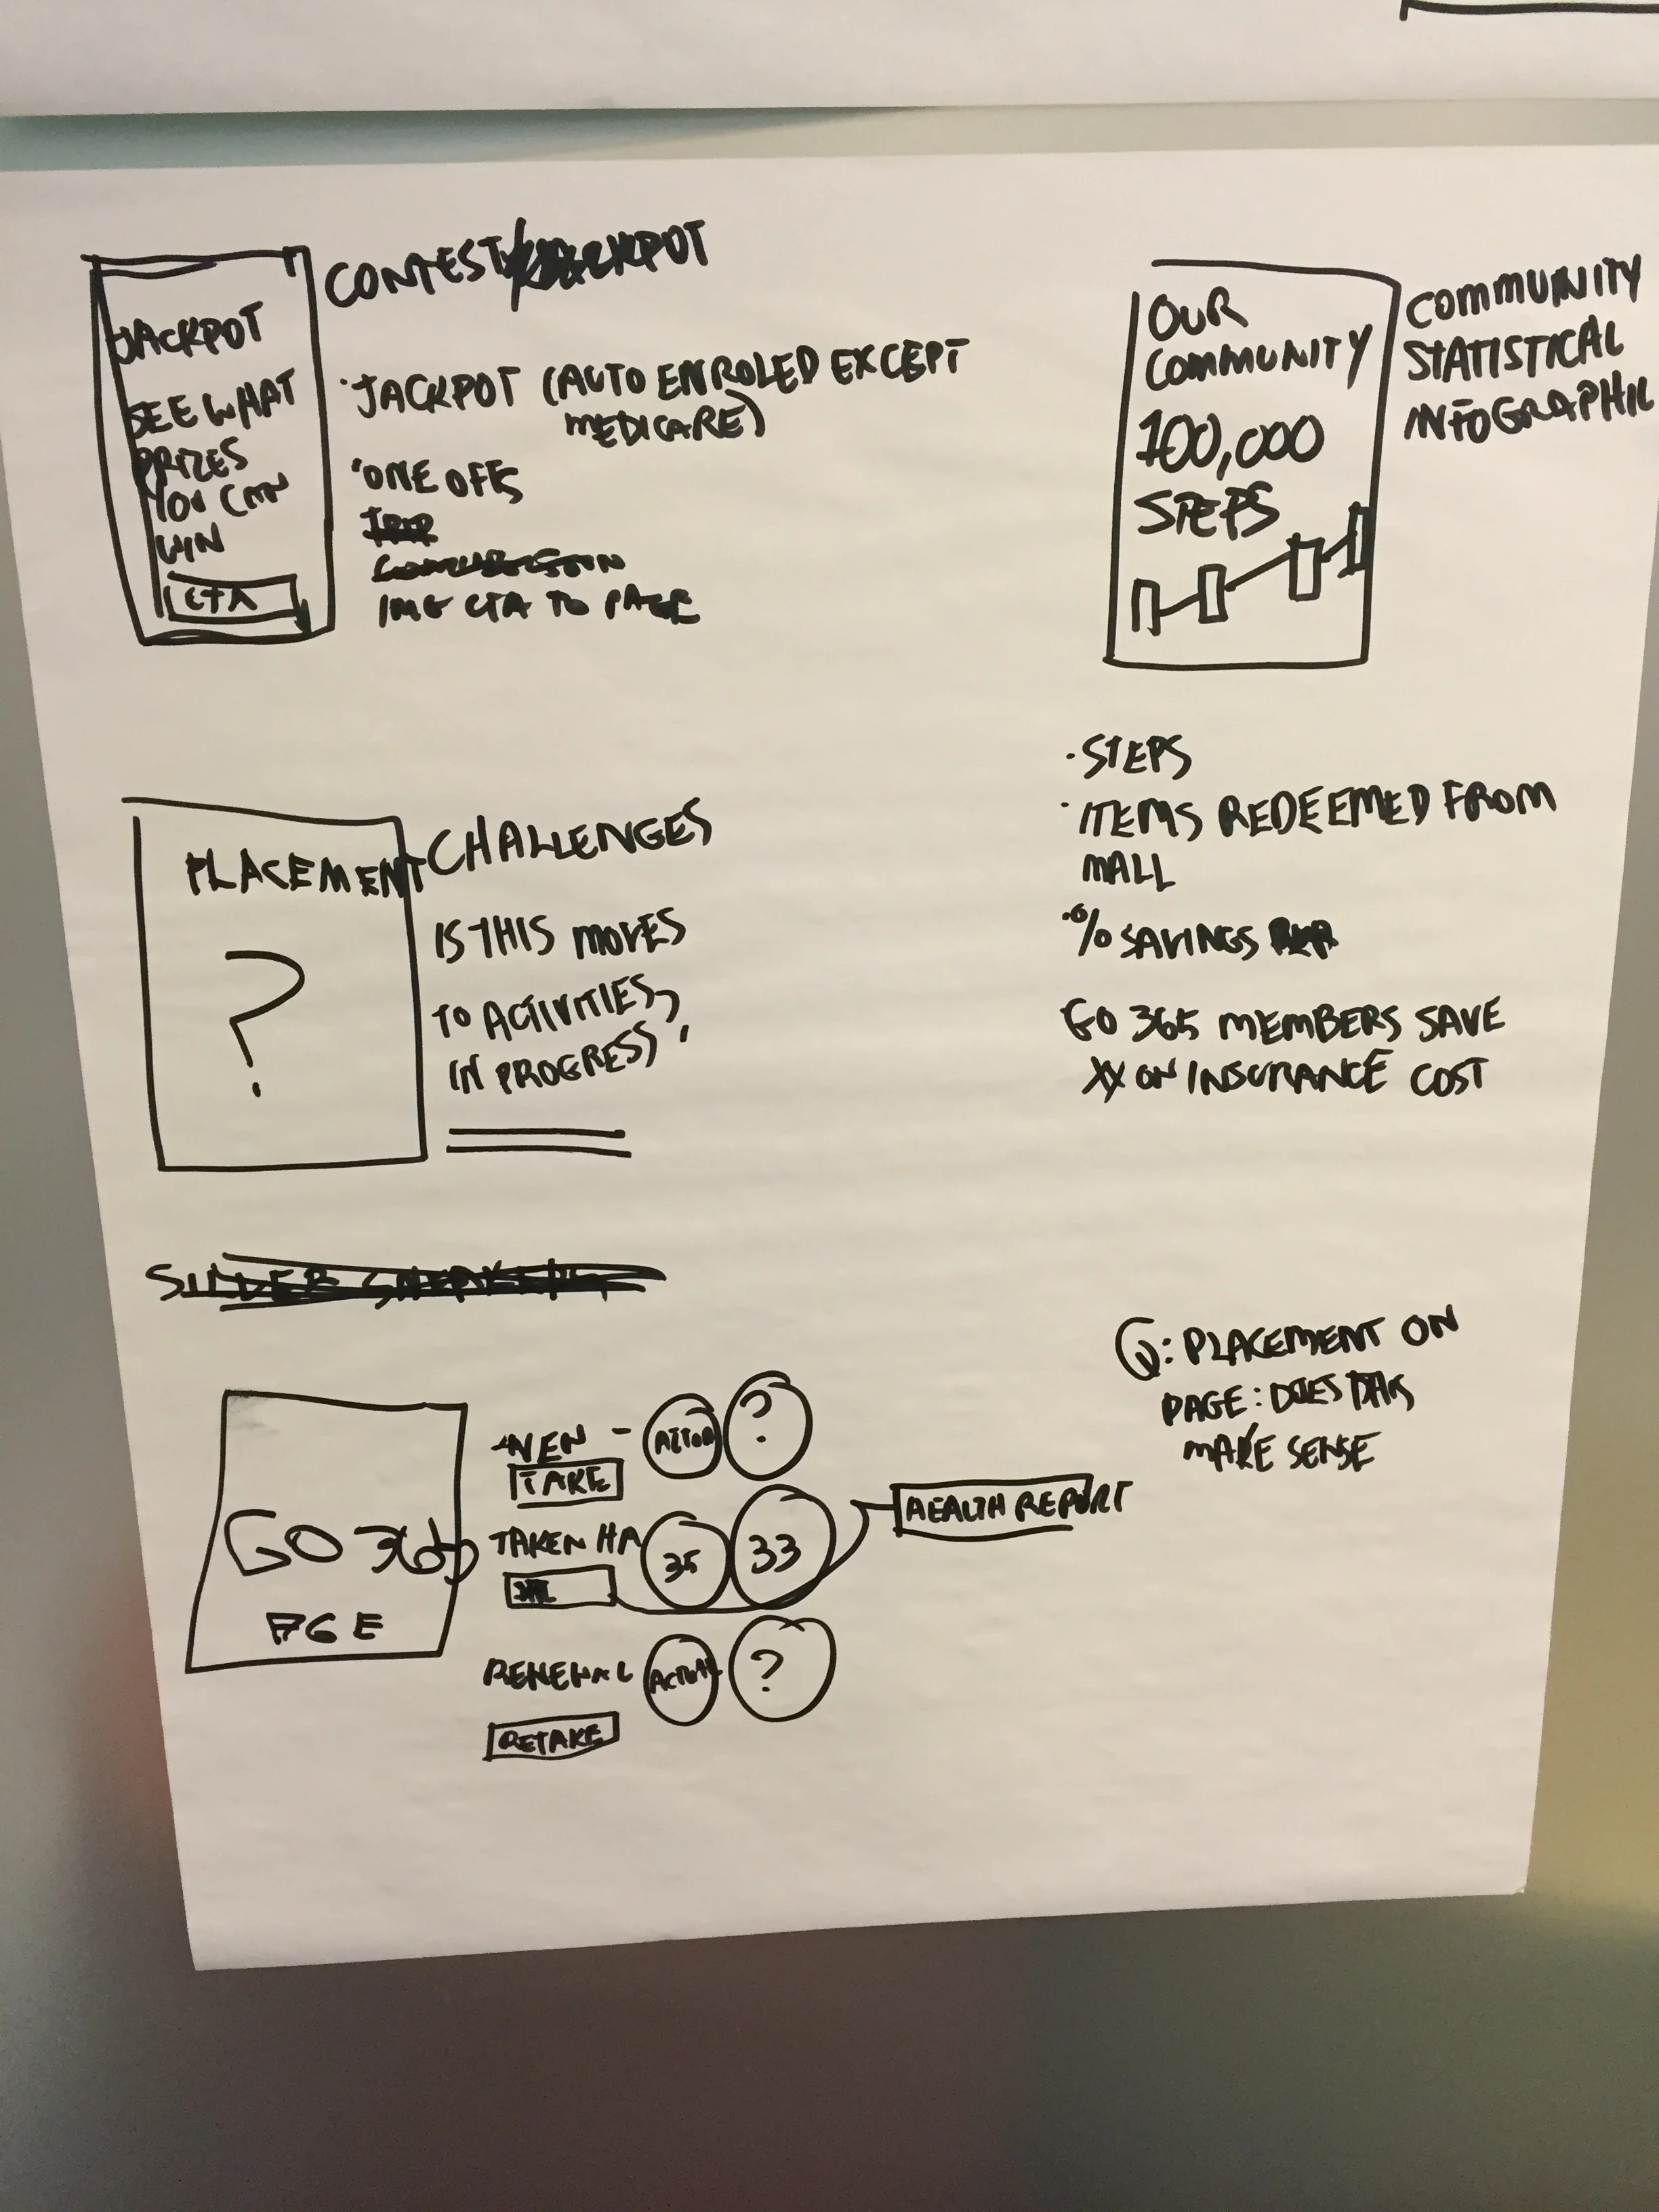 JACKPOT
SEE WHAT
PRIZES
YOU CAN
WIN
CTA
CONTEST/JACKPOT
·JACKPOT (AUTO ENROLED EXCEPT
MEDICARE)
·ONE OFFS
IMG CTA TO PAGE
OUR
COMMUNITY
100,000
STEPS
COMMUNITY
STATISTICAL
INFOGRAPHIC
·STEPS
·ITEMS REDEEMED FROM
MALL
·% SAVINGS
GO 365 MEMBERS SAVE
XX ON INSURANCE COST
PLACEMENT
?
CHALLENGES
IS THIS MOVES
TO ACTIVITIES,
IN PROGRESS,
SILVER SNEAKERS
GO 365
AGE
TAKE
?
TAKEN HA
35
33
HEALTH REPORT
RENEWAL
ACTUAL
?
RETAKE
Q: PLACEMENT ON
PAGE: DOES THIS
MAKE SENSE